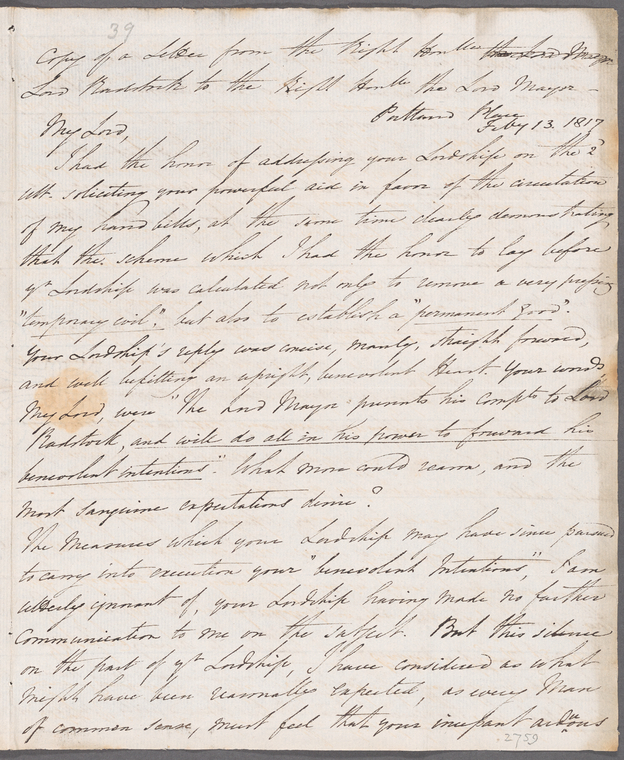 39
Copy of a Letter from the Right Honble the Lord Mayor
Lord Radstock to the Right Honble the Lord Mayor –
Portland Place
Feby 13. 1817
My Lord,
I had the honor of addressing your Lordship on the 2
ult. soliciting your powerful aid in favor of the circulation
of my hand bills, at the same time clearly demonstrating
that the scheme which I had the honor to lay before
yr Lordship was calculated not only to remove a very pressing
"temporary evil", but also to establish a "permanent good".
Your Lordship's reply was concise, manly, straight forward,
and well befitting an upright, benevolent Heart. Your words
My Lord, were "The Lord Mayor presents his Compts to Lord
Radstock, and will do all in his power to forward his
benevolent intentions". What more could reason, and the
most sanguine expectations desire?
The Measures which your Lordship may have since pursued
to carry into execution your "benevolent Intentions", I am
utterly ignorant of, your Lordship having made no farther
Communication to me on the subject. But this silence
on the part of yr Lordship, I have considered as what
might have been reasonably expected, as every Man
of common sense, must feel that your incessant arduous
2759